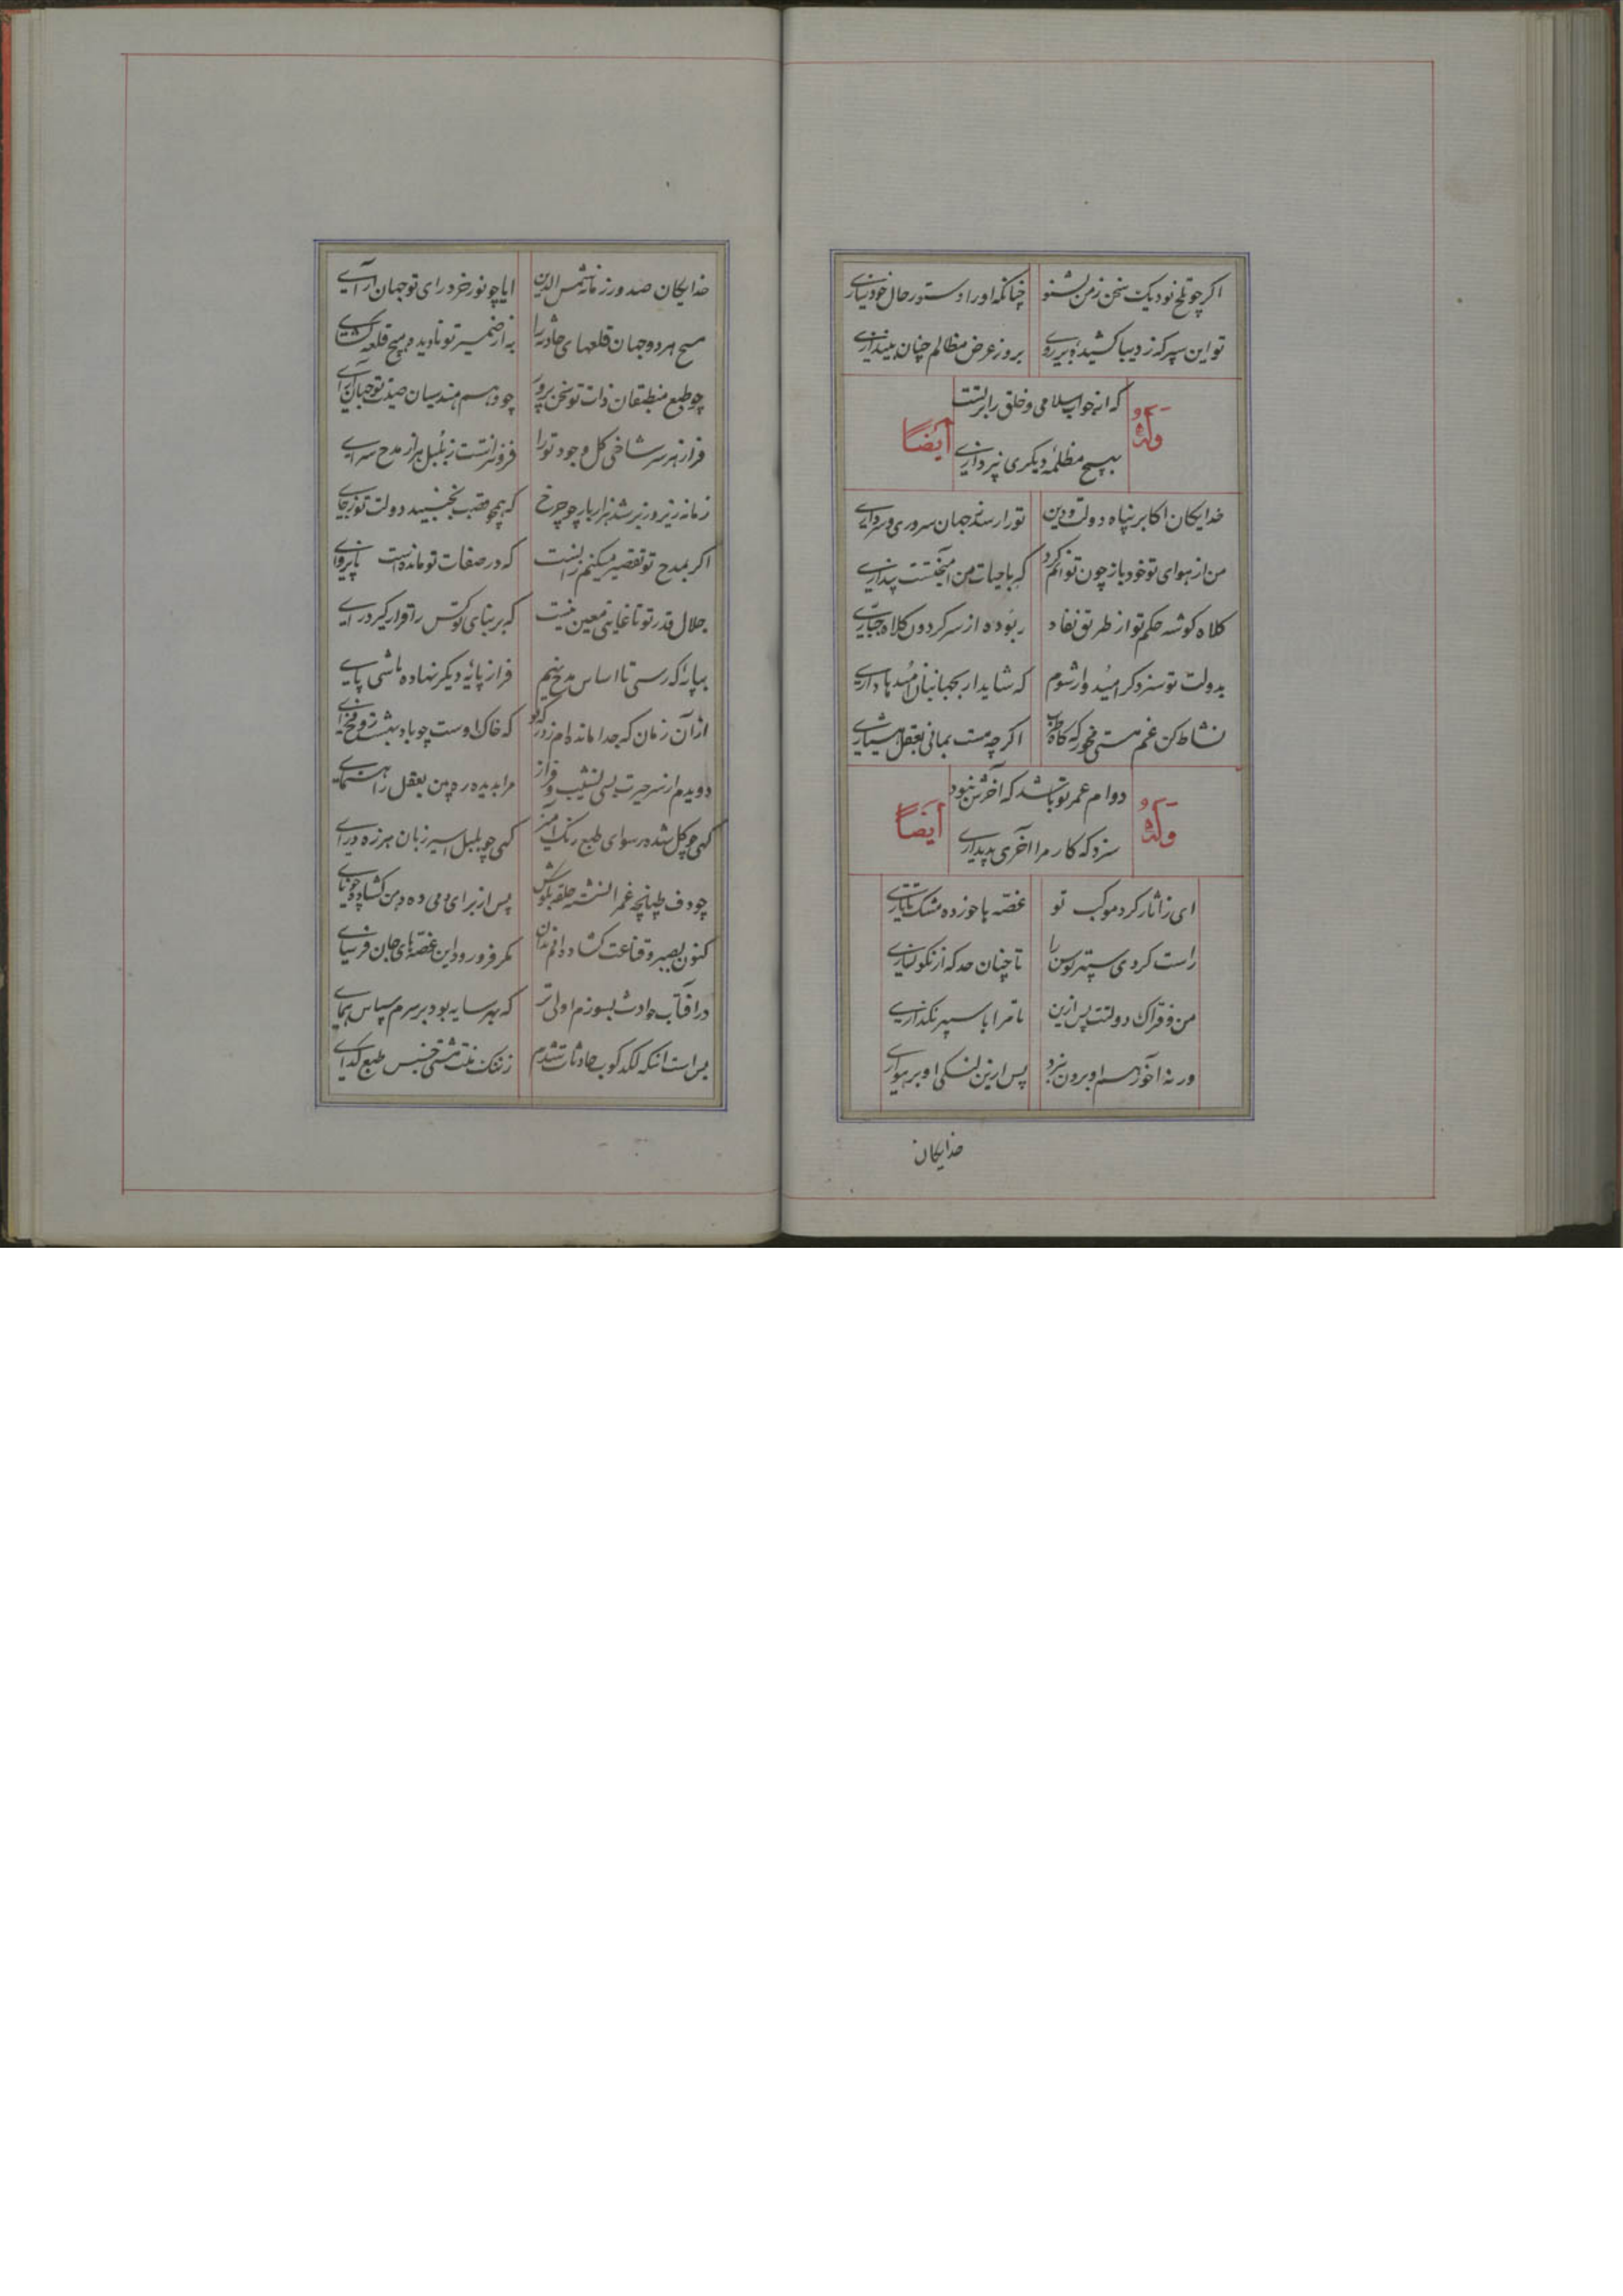 اگرچه تلخ نود یک سخن ز من بشنو چنانکه او را دستور حال خود سازی
تو این سپر که ز دیبا کشیدهٔ بر روی بروز عرض مظالم چنان بیندازی
وله
که از جواب سلامی و خلق را بر تست
بهیچ مظلمهٔ دیگری نپردازی
ایضاً
خدایکان اکابر پناه دولت و دین تو را رسد بجهان سروری و سرداری
من از هوای تو خود باز چون توانم کرد که با حیات من آمیختست پنداری
کلاه گوشه حکم تو از طریق نفاذ ربوده از سر گردون کلاه جباری
بدولت تو سزد گر امیدوار شوم که شاید ار بجهانبان امیدها داری
نشاط کن غم هستی مخور که اگرچه مست بمانی بعقل هشیاری
وله
دوام عمر تو باشد که آخرش نبود
سزد که کار مرا آخری پدید آری
ایضاً
ای ز آثار گرد موکب تو غصه‌ها خورده مشک تاتاری
راست کردی سپهر توسن را تا چنان شد که از نکوساری
من و فتراک دولتت پس ازین تا مرا با سپهر نگذاری
ورنه آخور هم او برون نبرد پس ازین لنگی او برهواری
خدایکان
خدایکان صدور زمانه شمس الدین ایا چو نور خرد رای تو جهان آرای
مسیح هر دو جهان قلعهای حادثه را به از ضمیر تو نادیده هیچ قلعه گشای
چو طبع منطقیان ذات تو سخن پرور چو وهم هندسیان صیت تو جهان پیمای
فراز هر سر شاخی گل وجود تو را فزونترست ز بلبل هزار مدح سرای
زمانه زیر و زبر شد هزار بار چو چرخ که همچو قطب نجنبید دولت تو ز جای
اگر بمدح تو تقصیر میکنم زانست که در صفات تو مانده است ناپروای
جلال قدر تو تا غایتی معین نیست که بر بنای تو کس را قرار گیرد رای
بپایهٔ که رسی تا اساس مدح نهم فراز پایهٔ دیگر نهاده باشی پای
از آن زمان که جدا مانده‌ام ز درگه تو که خاک اوست چو باد بهشت روح افزای
دویدم از سر حیرت بسی نشیب و فراز مرا بدیده ره بین بعقل راهنمای
گهی چو گل شده رسوای طبع رنگ آمیز گهی چو بلبل اسیر زبان هرزه درای
چو دف طپانچه غم را نشسته حلقه بگوش پس از برای دمی ده دهن گشاده چو نای
کنون بصبر و قناعت گشاده‌ام دندان مگر فرو رود این غصه‌های جان فرسای
در آفتاب حوادث بسوزم اولی‌تر که بهر سایه بود بر سرم سپاس همای
بر است آنکه لگدکوب حادثات شدم ز ننگ منت مشتی خسیس طبع گدای